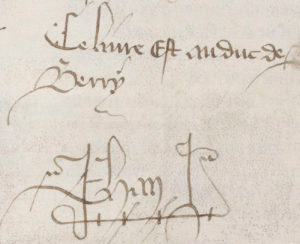 Ce livre Est au duc de
Berry
Jehan